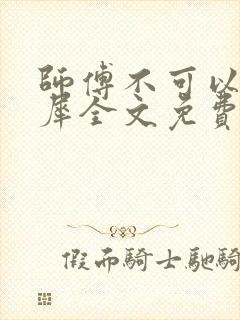 師傅不可以
犀全文免費
假面騎士馳騎